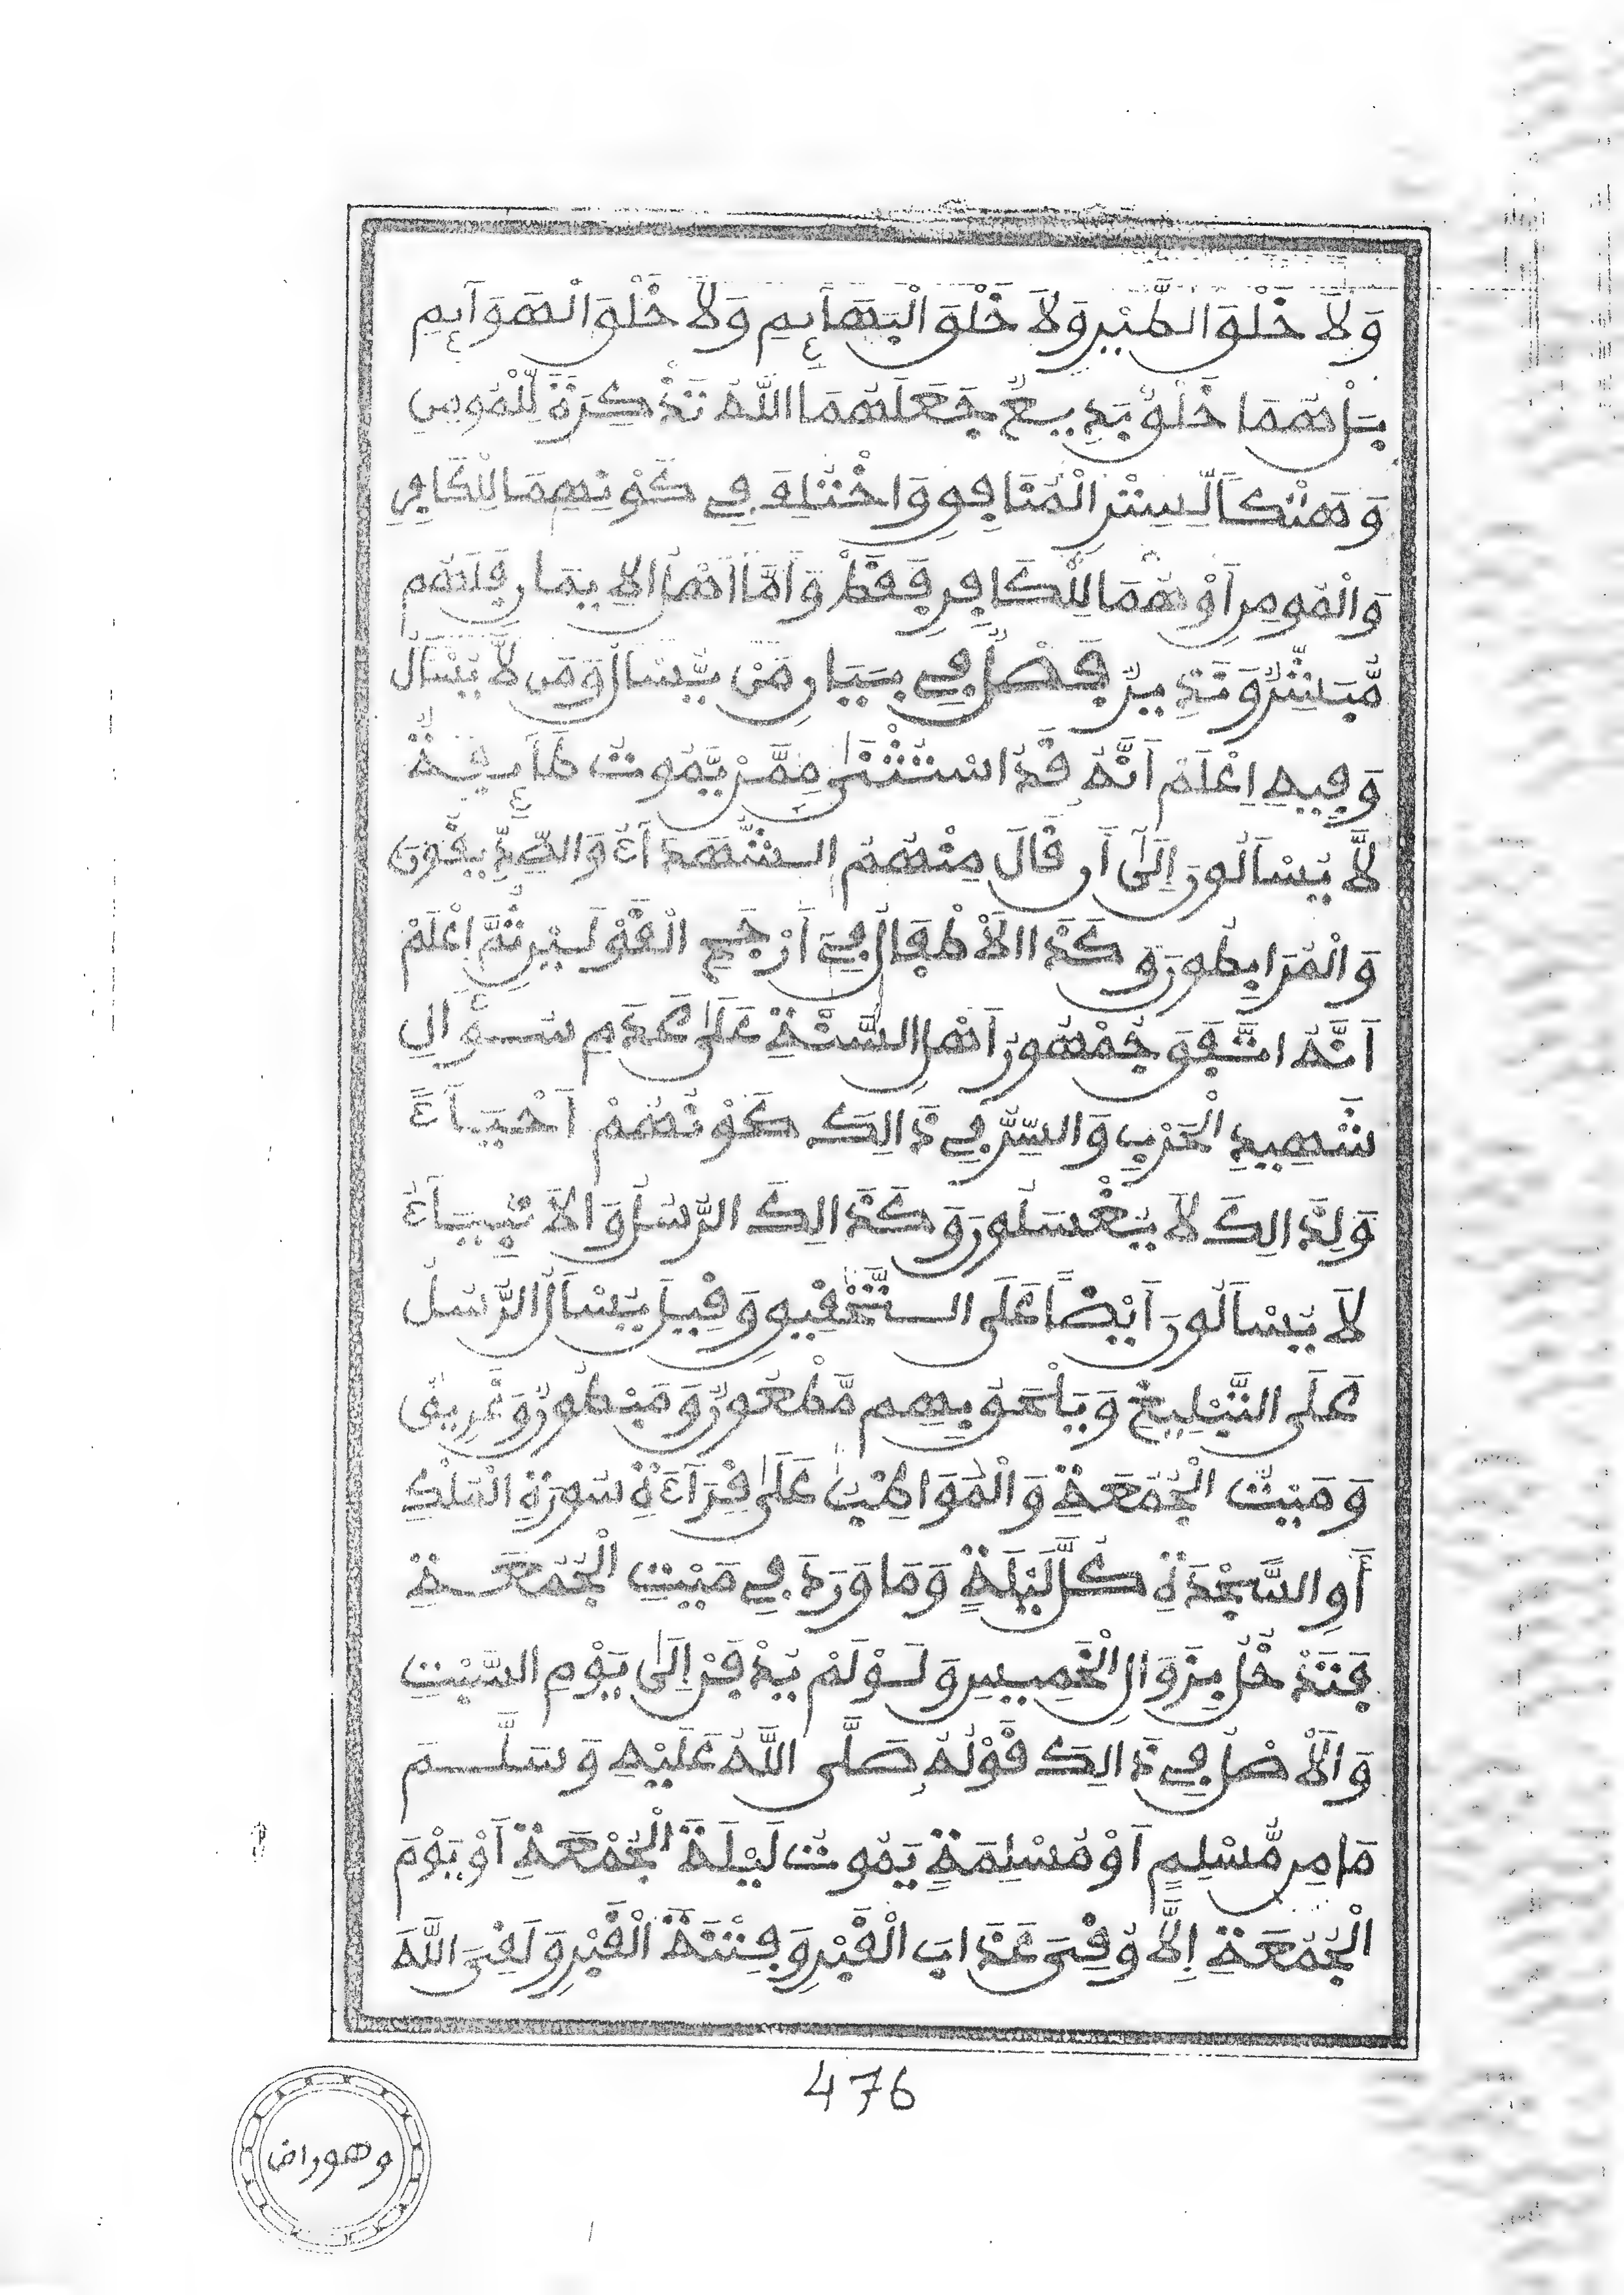 وَلَا خَلْقَ الطَّيْرِ وَلَا خَلْقَ الْبَهَآئِمِ وَلَا خَلْقَ الْهَوَآئِمِ
بَلْ هُمَا خَلْقٌ بَدِيعٌ جَعَلَهُمَا اللَّهُ تَذْكِرَةً لِّلْمُومِنِ
وَهَتْكًا لِّسِتْرِ الْمُنَافِقِ وَاخْتُلِفَ فِي كَوْنِهِمَا لِلْكَافِرِ
وَالْمُومِنِ أَوْ هُمَا لِلْكَافِرِ فَقَطْ وَأَمَّا أَهْلُ الِايمَانِ فَلَهُم
مُّبَشِّرٌ وَنَذِيرٌ فَصْلٌ فِي بَيَانِ مَنْ يُّسْأَلُ وَمَن لَّا يُسْأَلُ
وَفِيهِ اِعْلَمْ أَنَّهُ قَدُ اسْتُثْنَىٰ مِمَّنْ يَّمُوتُ طَآئِفَةٌ
لَّا يُسْأَلُونَ إِلَىٰ أَن قَالَ مِنْهُمُ الشُّهَدَآءُ وَالصِّدِّيقُونَ
وَالْمُرَابِطُونَ وَكَذَا الْأَطْفَالُ فِي أَرْجَحِ الْقَوْلَيْنِ ثُمَّ اعْلَمْ
أَنَّهُ اتَّفَقَ جُمْهُورُ أَهْلِ السُّنَّةِ عَلَىٰ عَدَمِ سُؤَالِ
شَهِيدِ الْحَرْبِ وَالسِّرُّ فِي ذَالِكَ كَوْنُهُمْ أَحْيَآءً
وَلِذَالِكَ لَا يُغْسَلُونَ وَكَذَالِكَ الرُّسُلُ وَالْأَنْبِيَآءُ
لَا يُسْأَلُونَ أَيْضًا عَلَى التَّحْقِيقِ وَقِيلَ يُسْأَلُ الرُّسُلُ
عَلَى التَّبْلِيغِ وَيَلْحَقُ بِهِم مَّطْعُونٌ وَمَبْطُونٌ وَغَرِيقٌ
وَمَيِّتُ الْجُمُعَةِ وَالْمُوَاظِبُ عَلَىٰ قِرَآءَةِ سُورَةِ الْمُلْكِ
أَوِ السَّجْدَةِ كُلَّ لَيْلَةٍ وَمَا وَرَدَ فِي مَيِّتِ الْجُمُعَةِ
فَتَدْخُلُ بِزَوَالِ الْخَمِيسِ وَلَوْ لَمْ يُدْفَنْ إِلَىٰ يَوْمِ السَّبْتِ
وَالْأَصْلُ فِي ذَالِكَ قَوْلُهُ صَلَّى اللَّهُ عَلَيْهِ وَسَلَّمَ
مَا مِن مُّسْلِمٍ أَوْ مُسْلِمَةٍ يَمُوتُ لَيْلَةَ الْجُمْعَةِ أَوْ يَوْمَ
الْجُمُعَةِ إِلَّا وُقِيَ عَذَابَ الْقَبْرِ وَفِتْنَةَ الْقَبْرِ وَلَقِيَ اللَّهَ
476